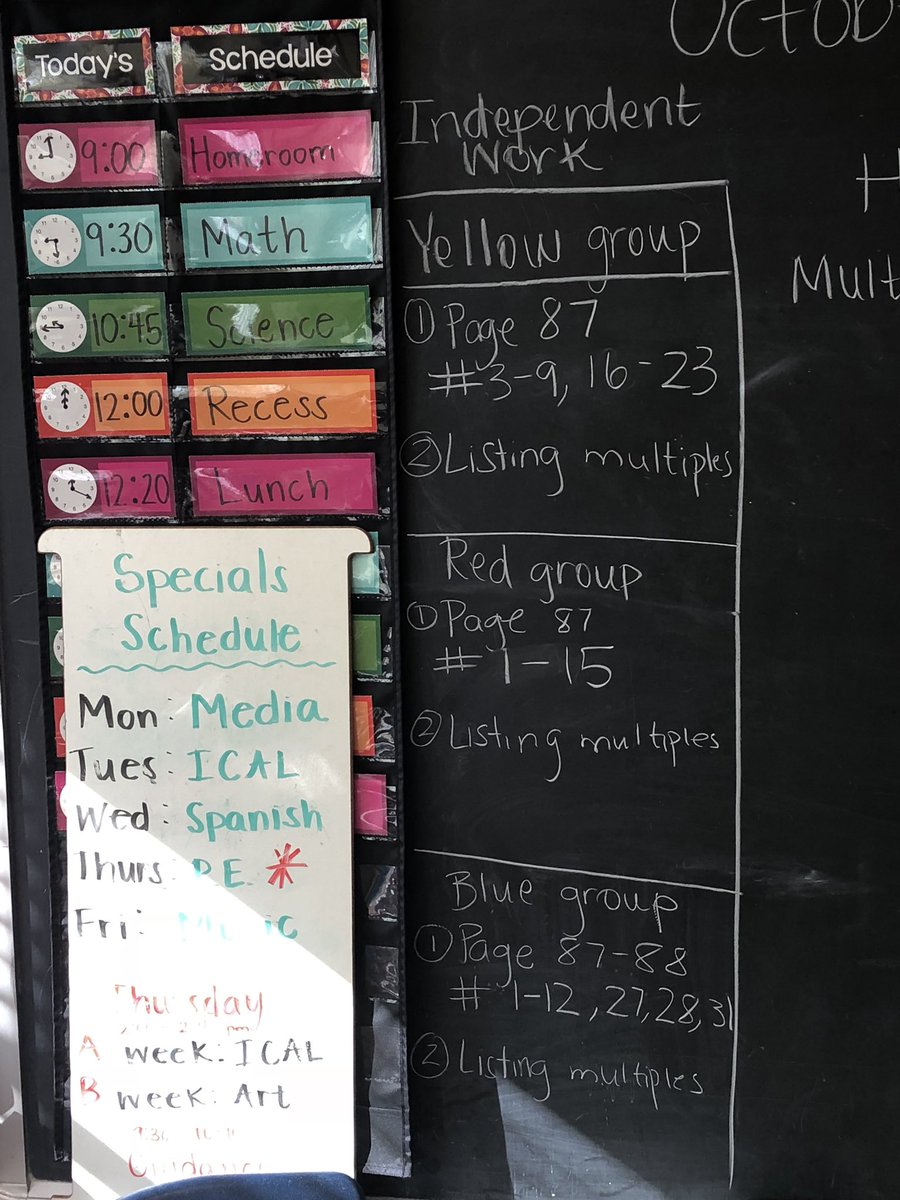 Today's Schedule
9:00 Homeroom
9:30 Math
10:45 Science
12:00 Recess
12:20 Lunch
Specials
Schedule
Mon: Media
Tues: ICAL
Wed: Spanish
Thurs: P.E. *
Fri: Music
Thursday
A week: ICAL
B week: Art
Octob
Independent
Work
Yellow group
① Page 87
#3-9, 16-23
② Listing multiples
Red group
① Page 87
# 1-15
② Listing multiples
Blue group
① Page 87-88
# 1-12, 27, 28, 31
② Listing multiples
H
Mult